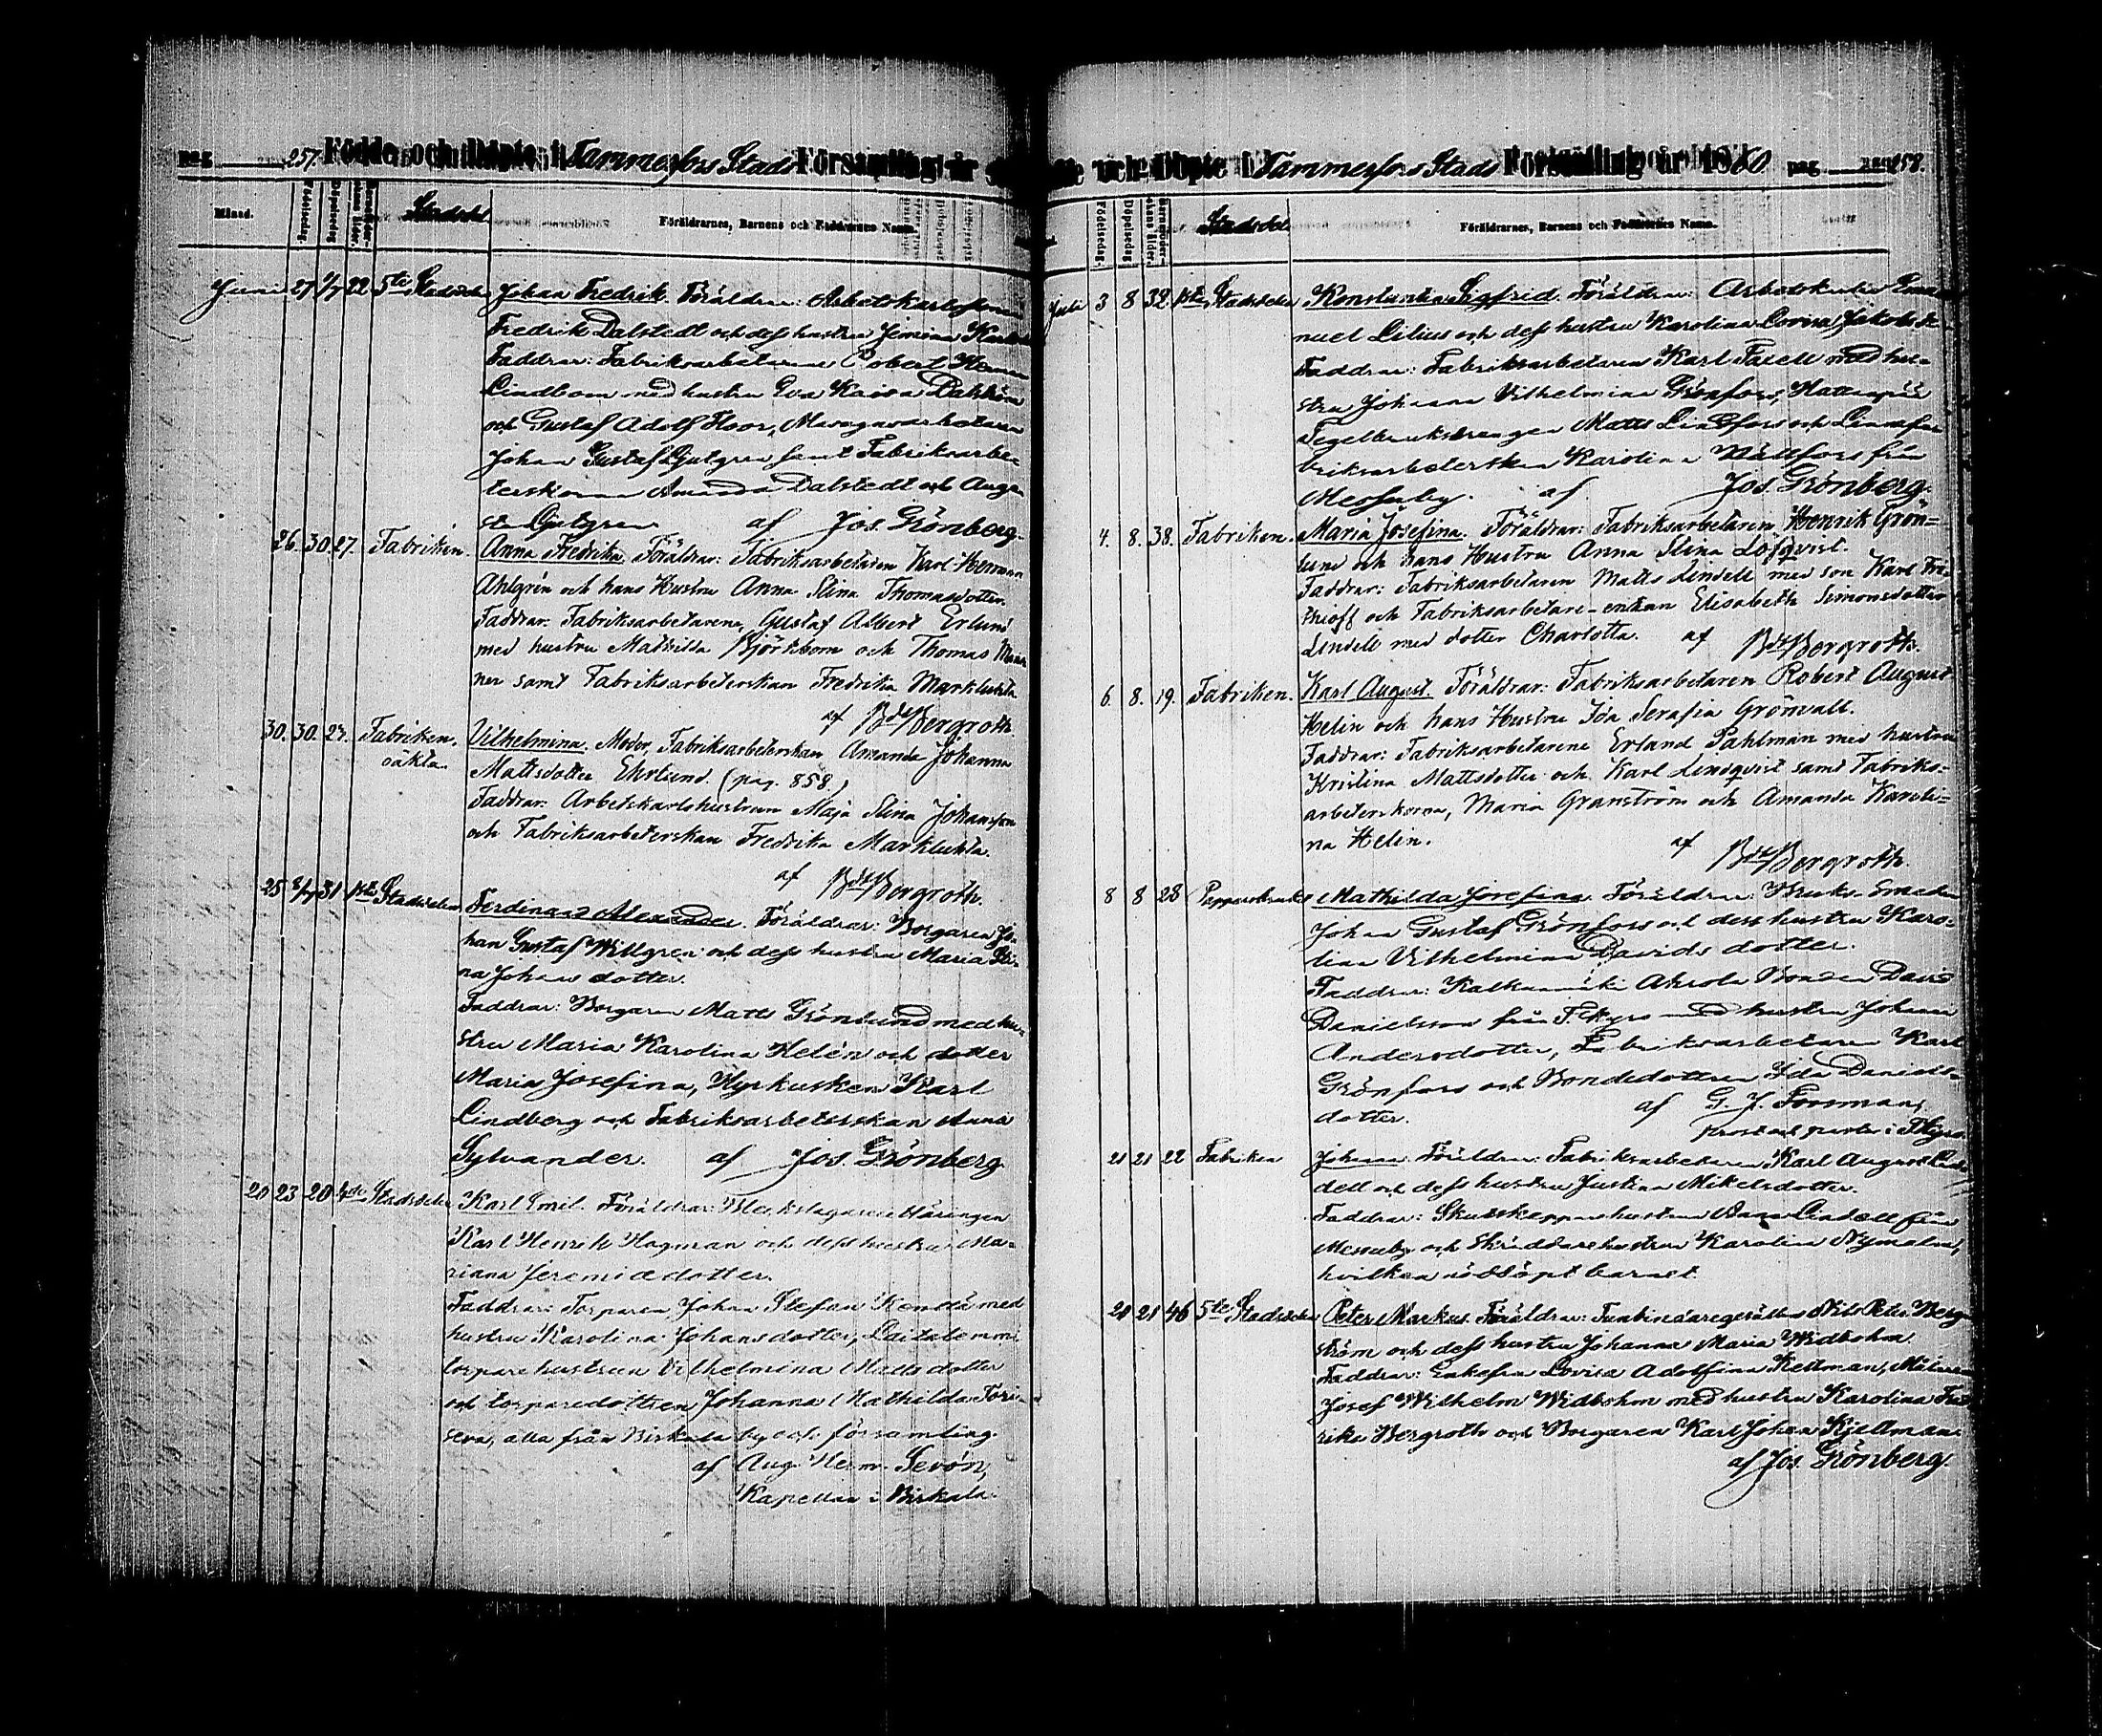 pag 257. Födde och Döpte i Tammerfors Stads Församling år
Månad. Födelsedag. Döpelsedag Stadsdel Föräldrarnes, Barnens och Faddrarnes Namn.
Juni 27 4/7 22 5te Stadsdelen Johan Fredrik. Föräldrar: Arbetskarlen
Fredrik Dalstedt och dess hustru
Faddrar: Fabriksarbetarene Robert Herman
Lindbom med hustru Eva Kaisa Dahlström
och Gustaf Adolf Hoor, Masugnsarbetaren
Johan Gustaf Ljutgren samt Fabriksarbe-
terskorna Amanda Dalstedt och Augu-
sta Ljutgren af Jos. Grönberg.
26. 30. 27. Fabriken. Anna Fredrika. Föräldrar: Fabriksarbetaren Karl Herman
Ahlgrén och hans Hustru Anna Stina Thomasdotter.
Faddrar: Fabriksarbetarene, Gustaf Albert Erlund
med hustru Mathilda Björkbom och Thomas
ner samt Fabriksarbeterskan Fredrika Marklukta.
af Bd Bergroth.
30. 30. 27. Fabriken. Vilhelmina. Moder, Fabriksarbeterskan Amanda Johanna
oäkta. Mattsdotter Ehrlund. (pag. 858.)
Faddrar: Arbetskarlshustrun Maja Stina Johansson
och Fabriksarbeterskan Fredrika Marklukta.
af Bd Bergroth.
25 31 1sta Stadsdelen Ferdinand Alexander. Föräldrar: Borgaren Jo-
han Gustaf Willgren och dess hustru Maria Sti-
na Johansdotter.
Faddrar: Borgaren Matts Grönlund med hu-
stru Maria Karolina Helén och dotter
Maria Josefina, Hyrkusken Karl
Lindberg och Fabriksarbeterskan Anna
Sylvander. af Jos. Grönberg
20 23 20 4de Stadsdelen Karl Emil. Föräldrar: Bleckslagarelärlingen
Karl Henrik Hagman och dess hustru Ma-
riana Jeremiædotter.
Faddrar: Torparen Johan Stefan Kendä med
hustru Karolina Johansdotter, Laitalammi
torparehustrun Vilhelmina Mattsdotter
och torparedottren Johanna Mathilda Tori-
seva, alla från Birkala by och församling.
af Aug. Herm. Sevón,
Kapellan i Birkala.
Döpte i Tammerfors Stads Församling år 1880 pag 258.
Födelsedag. Döpelsedag Stadsdel Föräldrarnes, Barnens och Faddrarnes Namn.
Juli 3 8 32. 1sta Stadsdelen Konstantin Sigfrid. Föräldrar: Arbetskarlen Ema-
nuel Lilius och dess hustru Karolina Lovisa
Faddrar: Fabriksarbetaren Karl Fasell med hu-
stru Johanna Vilhelmina Grönfors,
Tegelbruksdrängen Matts Lindfors och Linnefa-
briksarbeterskan Karolina Mällfors från
Messuby. af Jos. Grönberg.
4. 8. 38. Fabriken. Maria Josefina. Föräldrar: Fabriksarbetaren Henrik Grön-
lund och hans Hustru Anna Stina Löfqvist.
Faddrar: Fabriksarbetaren Matts Lindell med son Karl Fri-
thioff och Fabriksarbetare-enkan Elisabeth Simonsdotter
Lindell med dotter Charlotta. af Bd Bergroth.
6. 8. 19. Fabriken. Karl August. Föräldrar: Fabriksarbetaren Robert August
Helin och hans Hustru Ida Serafia Grönvall.
Faddrar: Fabriksarbetarene Erland Pahlman med hustru
Kristina Mattsdotter och Karl Lindqvist samt Fabriks-
arbeterskorna, Maria Granström och Amanda Karoli-
na Helin. af Bd Bergroth.
8 8 28 Pappersbruket Mathilda Josefina. Föräldrar: Bruks-Smeden
Johan Gustaf Grönfors och dess hustru Karo-
lina Vilhelmina Davidsdotter.
Faddrar: Ahrola Bonden David
Danielsson från T.kyro med hustru Johanna
Andersdotter, Fabriksarbetaren Karl
Grönfors och Bondedottren Ida Daniels-
dotter. af G. J. Forsman,
prost och pastor i T.kyro
21 21 22 Fabriken Johan. Föräldrar: Fabriksarbetaren Karl August Lin-
dell och dess hustru Justina Mikelsdotter.
Faddrar: hustrun Anna Lindell från
Messuby och Skräddarehustrun Karolina Nymalm,
hvilken nöddöpt barnet.
21 21 46 5te Stadsdelen Peter Markus. Föräldrar: Tunnbindaregesällen Nils Peter Berg-
ström och dess hustru Johanna Maria Widbohm
Faddrar: Enkefru Lovisa Adolfina Kellman, Målaren
Josef Wilhelm Widbohm med hustru Karolina Fred-
rika Bergroth och Borgaren Karl Johan Kjellman.
af Jos. Grönberg